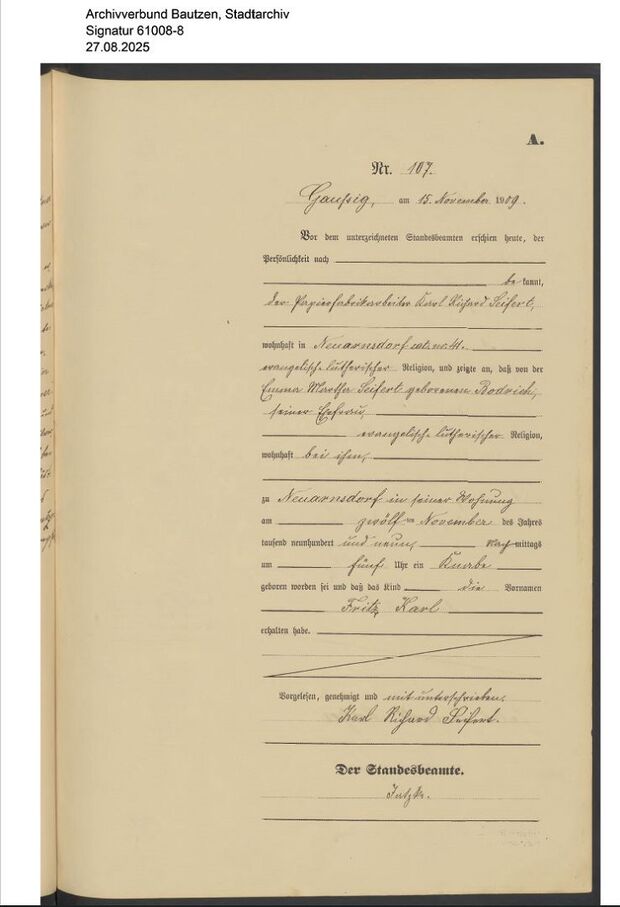 Archivverbund Bautzen, Stadtarchiv
Signatur 61008-8
27.08.2025
A.
Nr. 107.
Gaußig, am 15. November 1909.
Vor dem unterzeichneten Standesbeamten erschien heute, der
Persönlichkeit nach
be kannt,
der Papierfabrikarbeiter Karl Richard Seifert,
wohnhaft in Neuarnsdorf cat. no. 41.
evangelisch-lutherischer Religion, und zeigte an, daß von der
Emma Martha Seifert geborenen Bodrich,
seiner Ehefrau,
evangelisch-lutherischer Religion,
wohnhaft bei ihm,
zu Neuarnsdorf in seiner Wohnung
am zwölf ten November des Jahres
tausend neunhundert und neun, Nach mittags
um fünf Uhr ein Knabe
geboren worden sei und daß das Kind die Vornamen
Fritz Karl
erhalten habe.
Vorgelesen, genehmigt und mitunterschrieben,
Karl Richard Seifert.
Der Standesbeamte.